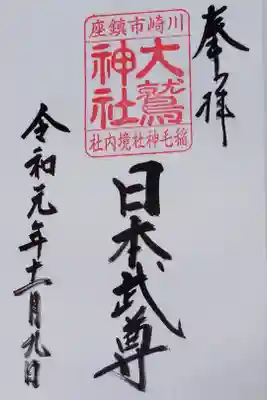 奉拝
川崎市鎮座
大鷲
神社
稲毛神社境内社
日本武尊
令和元年十一月九日